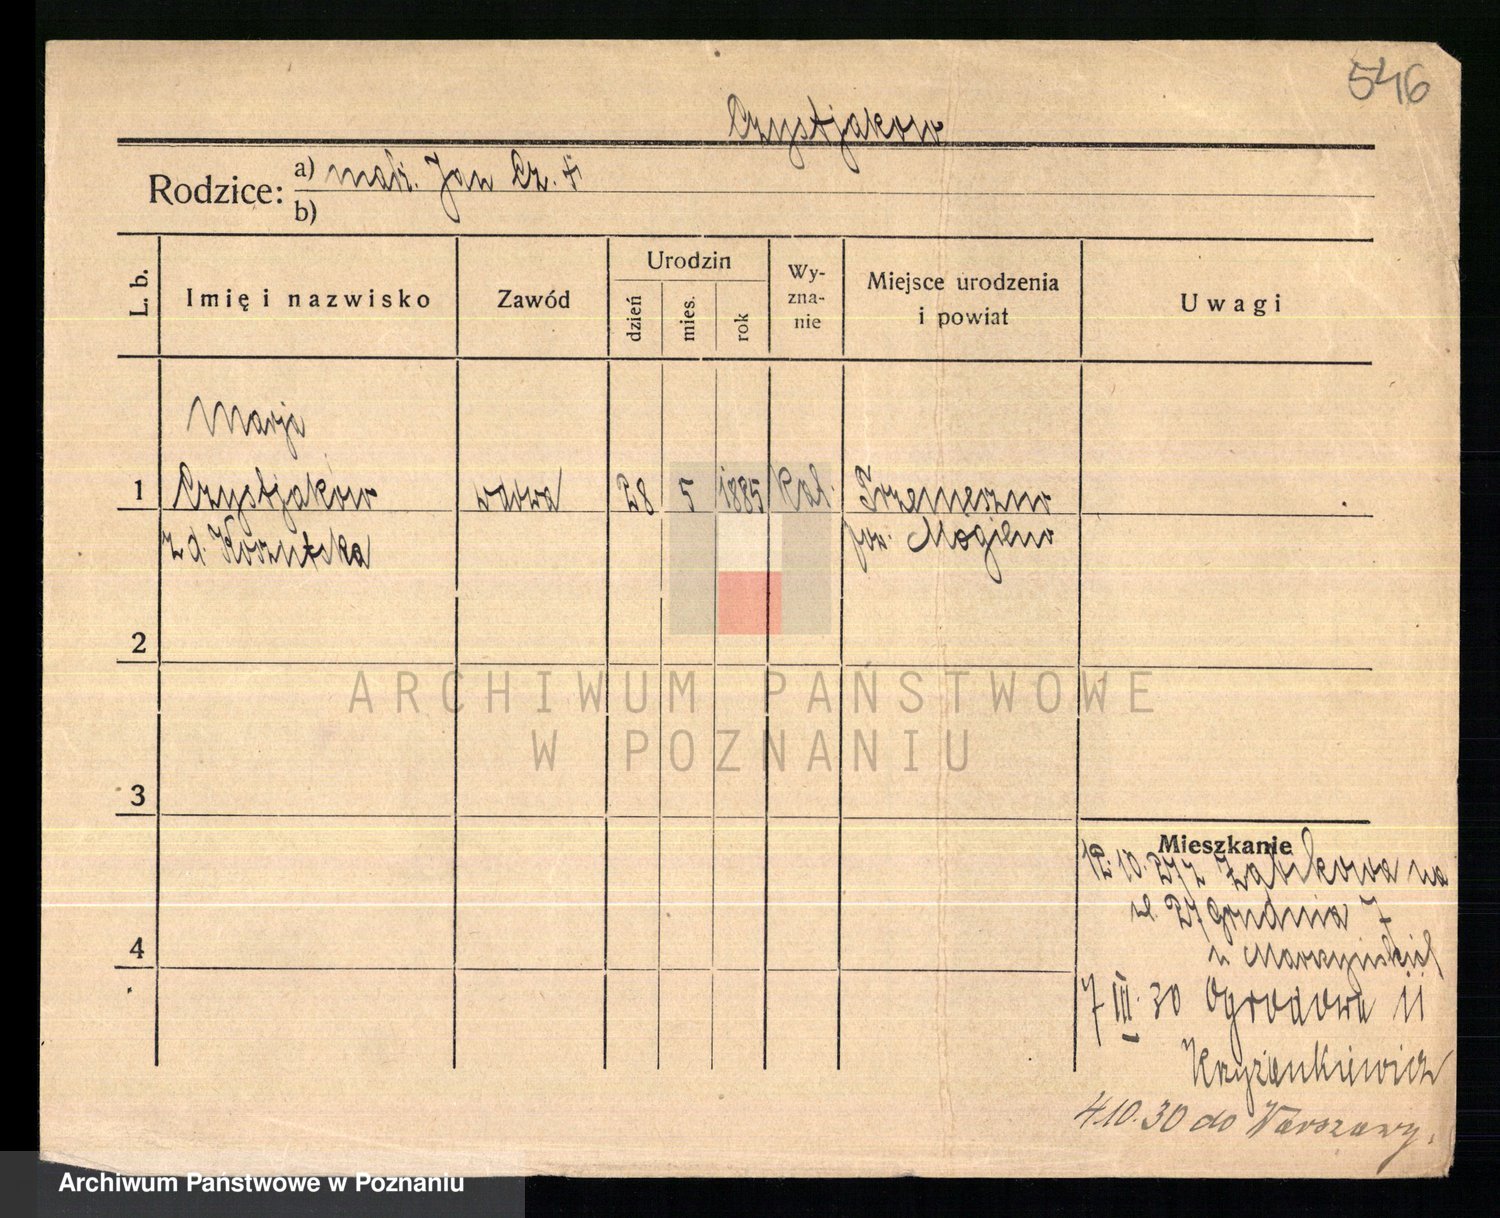 546
Czystjakow
Rodzice: a) małż. Jan Cz. †
b)
L. b.
Imię i nazwisko
Zawód
Urodzin
dzień
mies.
rok
Wy-
zna-
nie
Miejsce urodzenia
i powiat
Uwagi
Marja
1 Czystjakow wdowa 28 5 1885 kat. Trzemeszno
z d. Koszutska pow. Mogilno
2
ARCHIWUM PAŃSTWOWE
W POZNANIU
3
Mieszkanie
12.10.27 z Żabikowa na
ul. 27 Grudnia 7
u
4
7 III. 30 Ogrodowa 11
Krzyżankiewicz
4.10.30 do Warszawy.
Archiwum Państwowe w Poznaniu